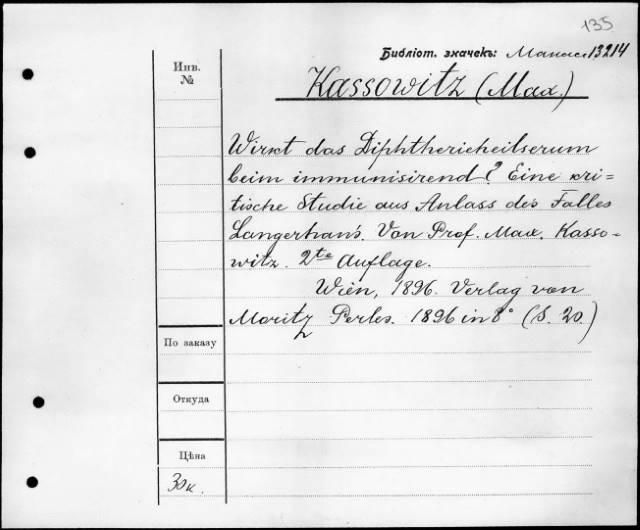 135
Библіот. значекъ: Манас 13214
Инв.
№
Kassowitz (Max.)
Wirkt das Diphtherieheilserum
beim immunisirend? Eine kri=
tische Studie aus Anlass des Falles
Langerhans. Von Prof. Max. Kasso-
witz. 2te Auflage.
Wien, 1896. Verlag von
Moritz Perles. 1896 in 8° (S. 20.)
По заказу
Откуда
Цѣна
30к.